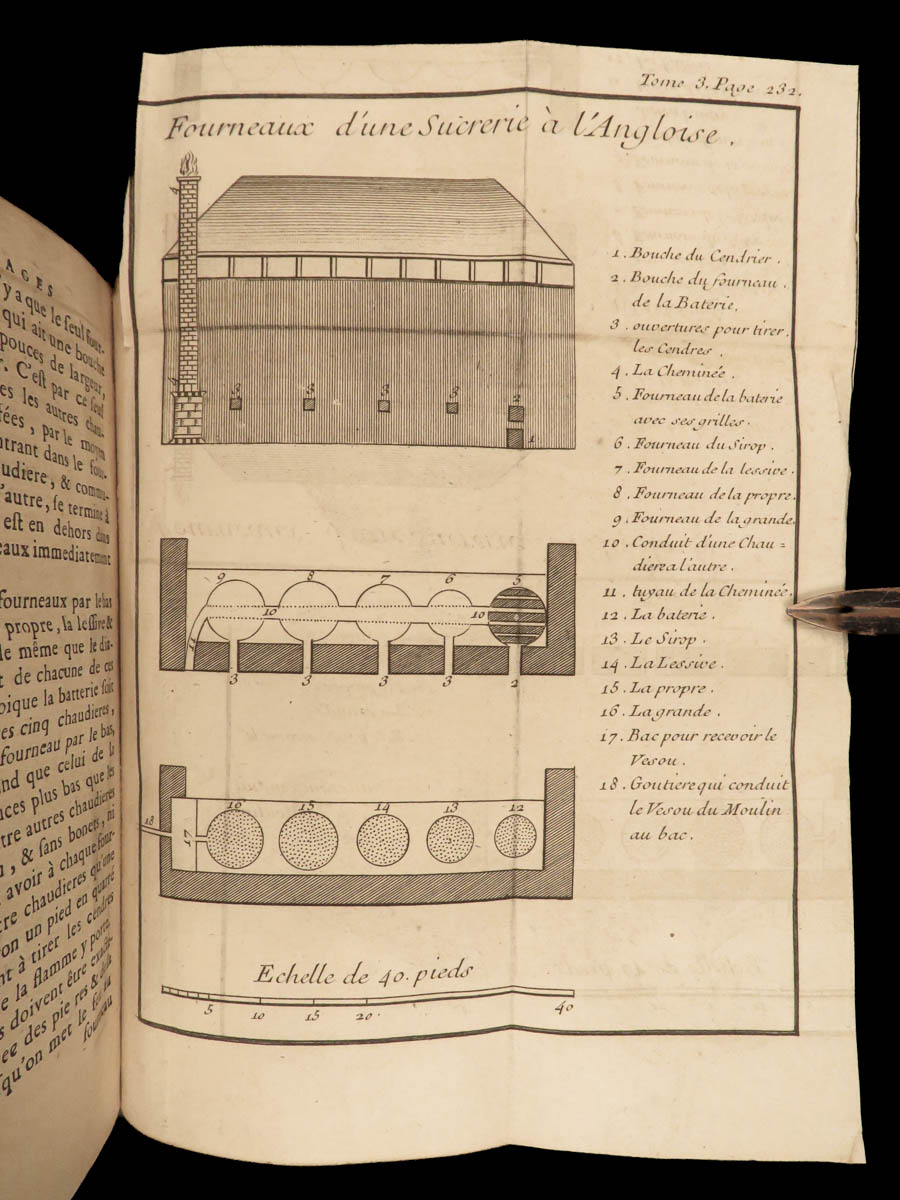 AGES
y a que le ſeul four-
qui ait une bouche
pouces de largeur,
C'eſt par ce ſeul
es les autres chau-
fées, par le moyen
entrant dans le four-
udiere, & commu-
l'autre, ſe termine à
eſt en dehors dans
eaux immediatement
fourneaux par le bas
propre, la leſſive &
le même que le dia-
t de chacune de ces
oique la batterie ſoit
es cinq chaudieres,
fourneau par le bas,
nd que celui de la
nces plus bas que les
tre autres chaudieres
, & ſans bonets, ni
avoir à chaque four-
tre chaudieres qu'une
on un pied en quarré
nt à tirer les cendres
e la flamme y porte,
s doivent être
ée des pie res &
qu'on met le feu
fourneau
Tome 3. Page 232.
Fourneaux d'une Sucrerie à l'Angloise.
4
4
3 3 3 3 2
1
1. Bouche du Cendrier.
2. Bouche du fourneau
de la Baterie.
3. ouvertures pour tirer
les Cendres.
4. La Cheminée.
5. Fourneau de la baterie
avec ses grilles.
6. Fourneau du Sirop.
7. Fourneau de la lessive.
8. Fourneau de la propre.
9. Fourneau de la grande.
10. Conduit d'une Chau=
diere a l'autre.
11. tuyau de la Cheminée.
12. La baterie.
13. Le Sirop.
14. La Lessive.
15. La propre.
16. La grande.
17. Bac pour recevoir le
Vesou.
18. Goutiere qui conduit
le Vesou du Moulin
au bac.
9 8 7 6 5
10 10
11
3 3 3 3 2
16 15 14 13 12
18 17
Echelle de 40. pieds
5 10 15 20 40